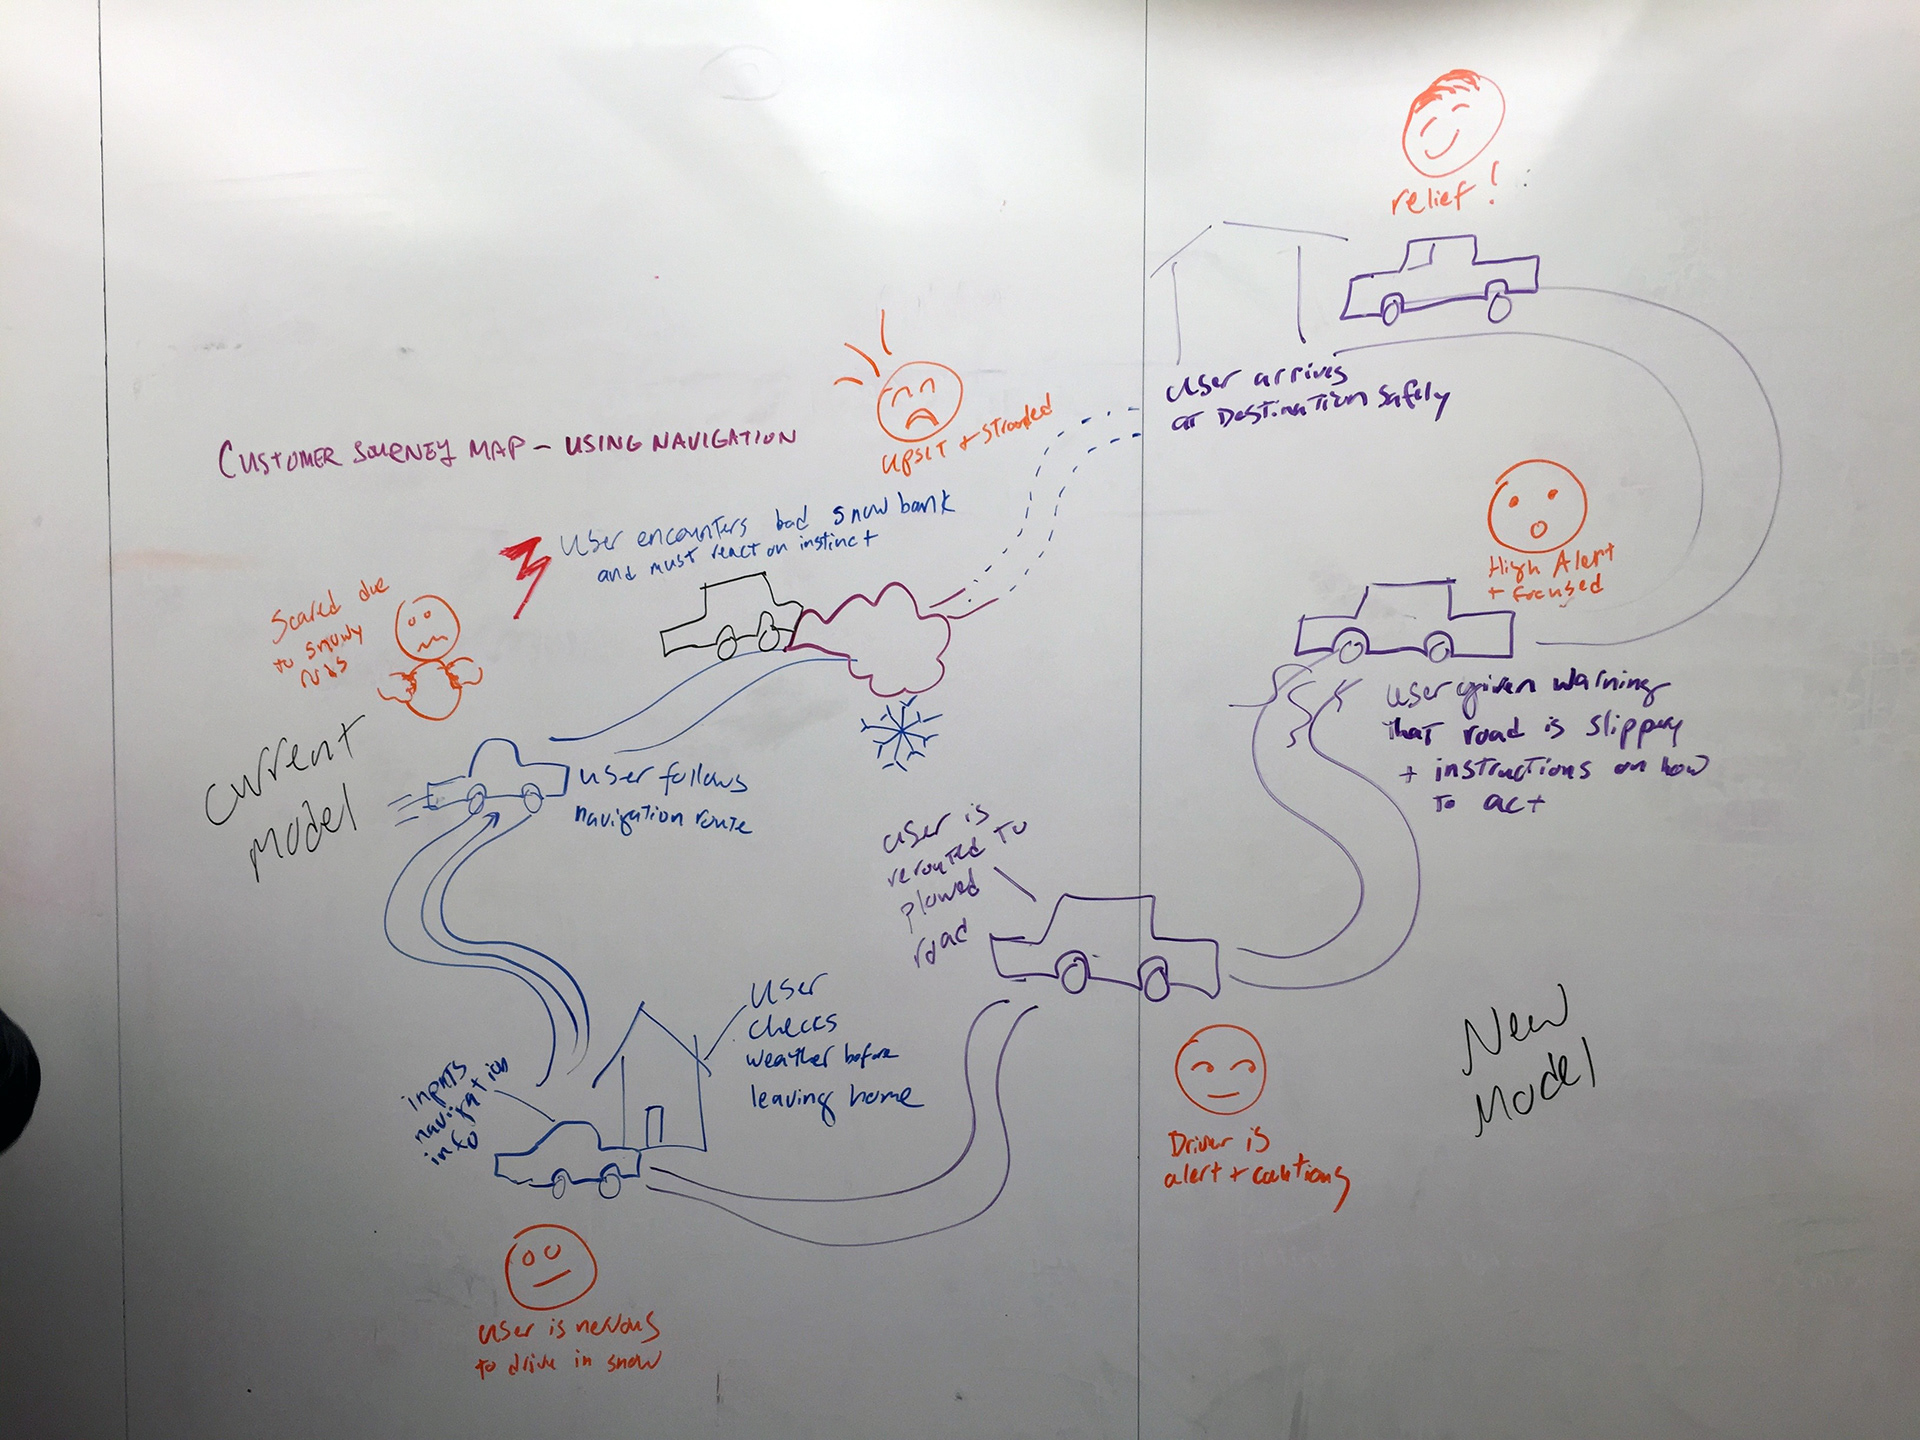 relief!
User arrives
at Destination safely
upset + stranded
CUSTOMER JOURNEY MAP - USING NAVIGATION
User encounters bad snow bank
and must react on instinct
High Alert
+ focused
Scared due
to snowy
current
model
user follows
navigation route
user given warning
that road is slippery
+ instructions on how
to act
user is
rerouted to
plowed
road
user
checks
weather before
leaving home
inputs
navigation
info
New
Model
Driver is
alert + cautious
user is nervous
to drive in snow